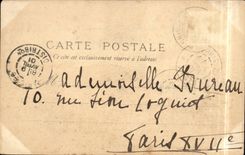 CARTE POSTALE
Ce côté est exclusivement réservé à l'adresse
DISTRIB
01
Mademoiselle Bureau
10. rue Léon Cogniet
Paris XVIIe